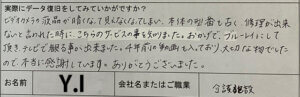 実際にデータ復旧をしてみていかがですか?
ビデオカメラの液晶が暗くなって見えなくなってしまい、本体の型番も古く修理が出来
ないと言われた時に、こちらのサービスの事を知りました。おかげで、ブルーレイにして
頂き、テレビで観る事が出来ました。4年前の動画も入っており、大切な物でしたの
で、本当に感謝しています。ありがとうございました。
お名前 Y.I 会社名またはご職業 介護施設